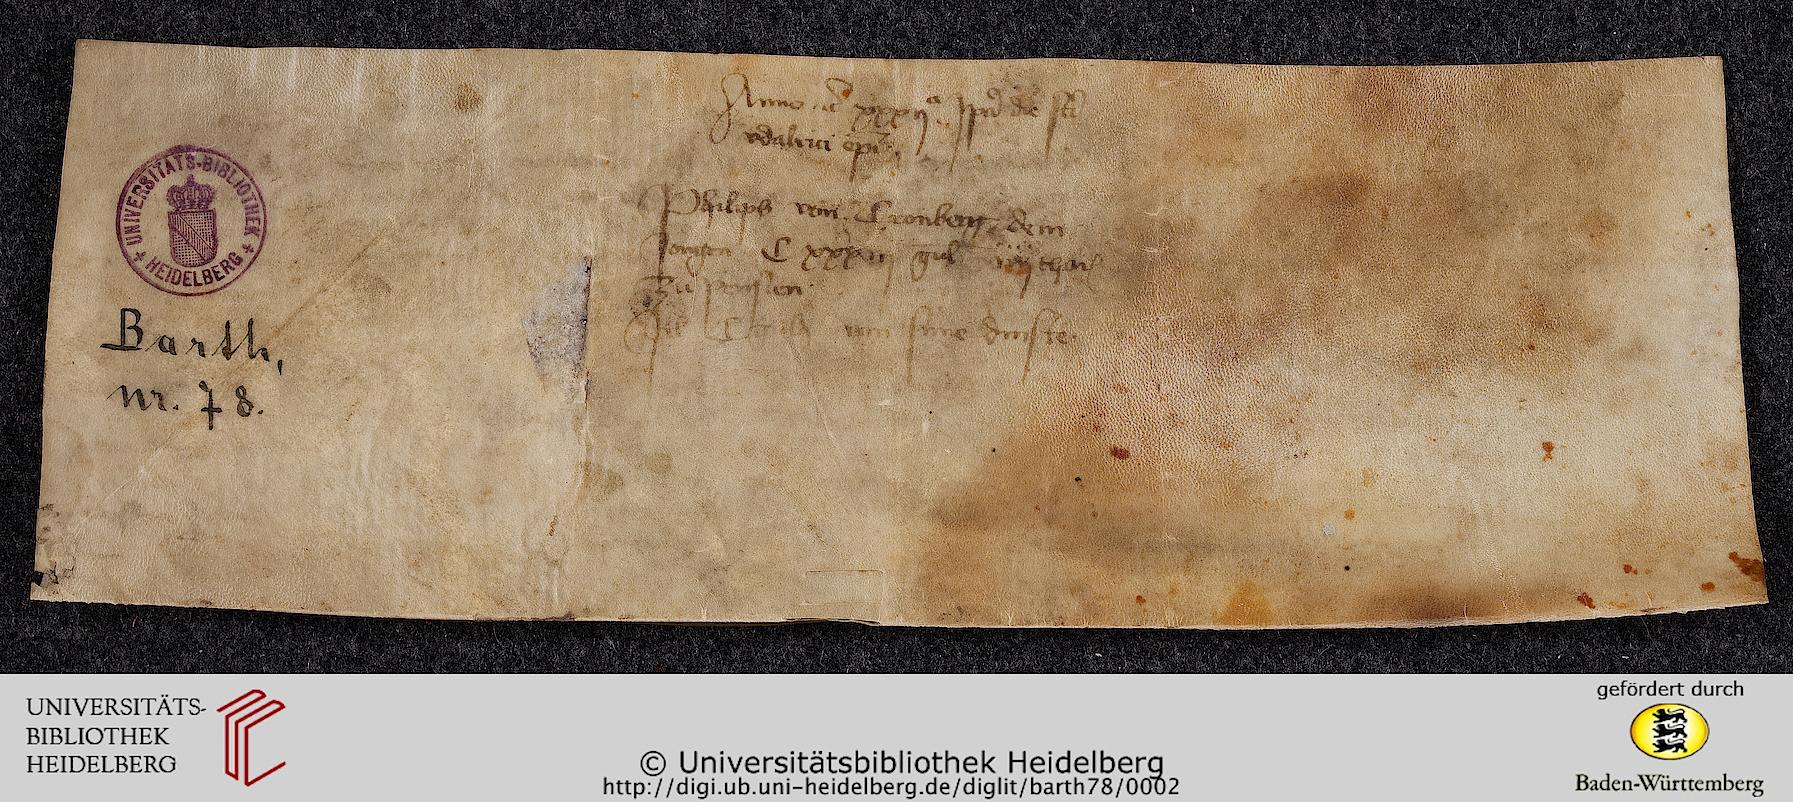 Anno xxxijᵃ Ipſa die ſti
vdalrici epi
Philips von Cronberg dem
Jongen C xxxiij gul
Zu
von ſime dinſte
UNIVERSITÄTS-BIBLIOTHEK
+ HEIDELBERG +
Barth,
nr. 78.
UNIVERSITÄTS-
BIBLIOTHEK
HEIDELBERG
© Universitätsbibliothek Heidelberg
http://digi.ub.uni-heidelberg.de/diglit/barth78/0002
gefördert durch
Baden-Württemberg